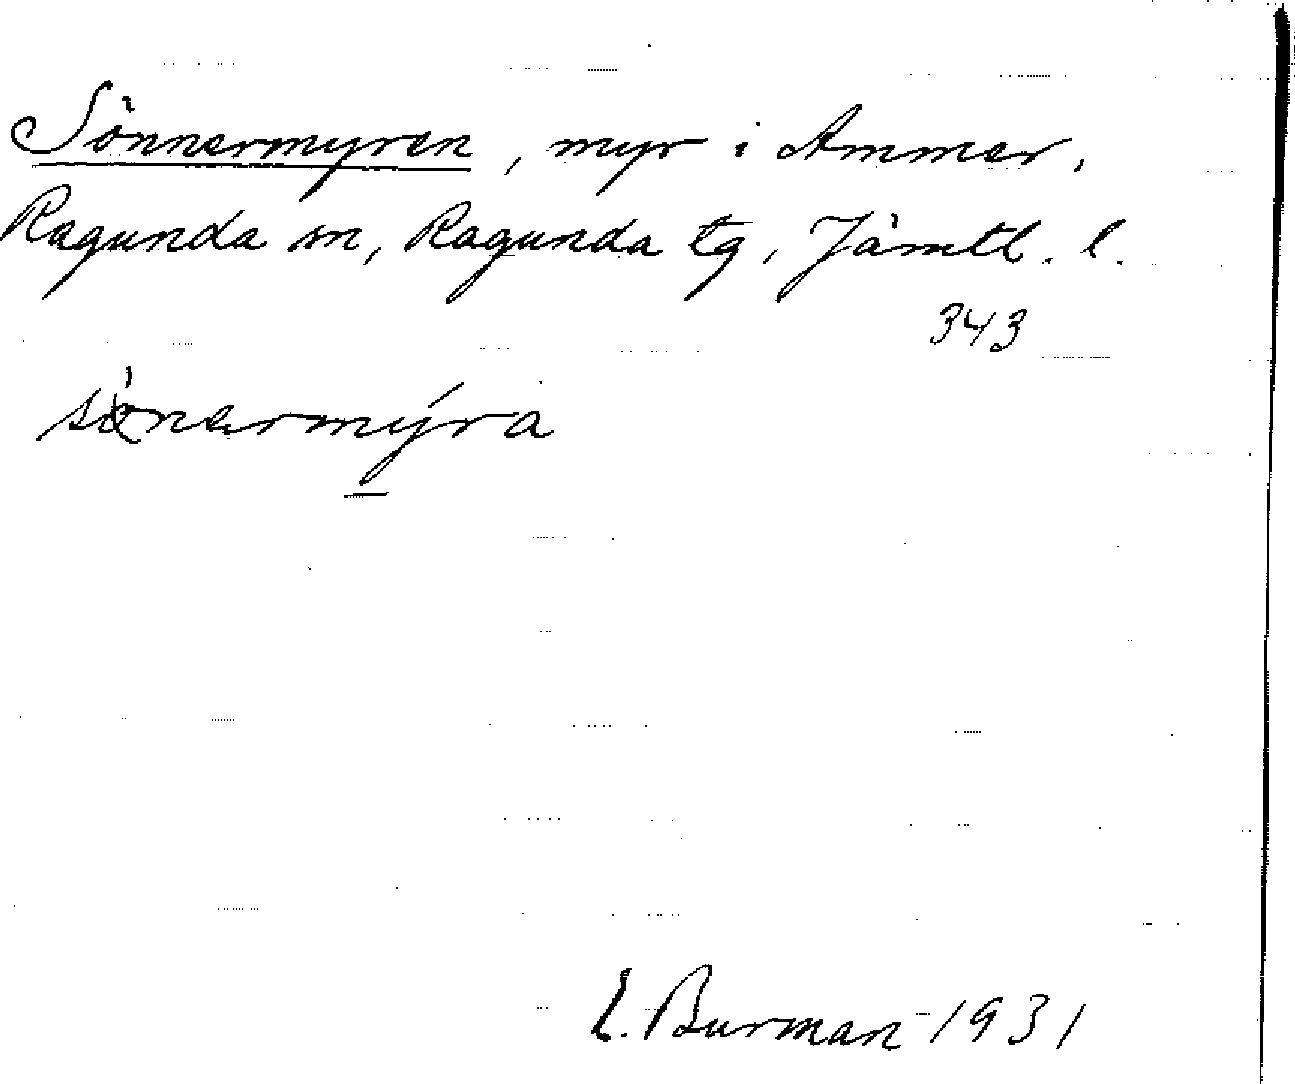 Sönnermyren, myr i Ammer,
Ragunda sn, Ragunda tg, Jämtl. l.
343
sönermýra
E. Burman 1931